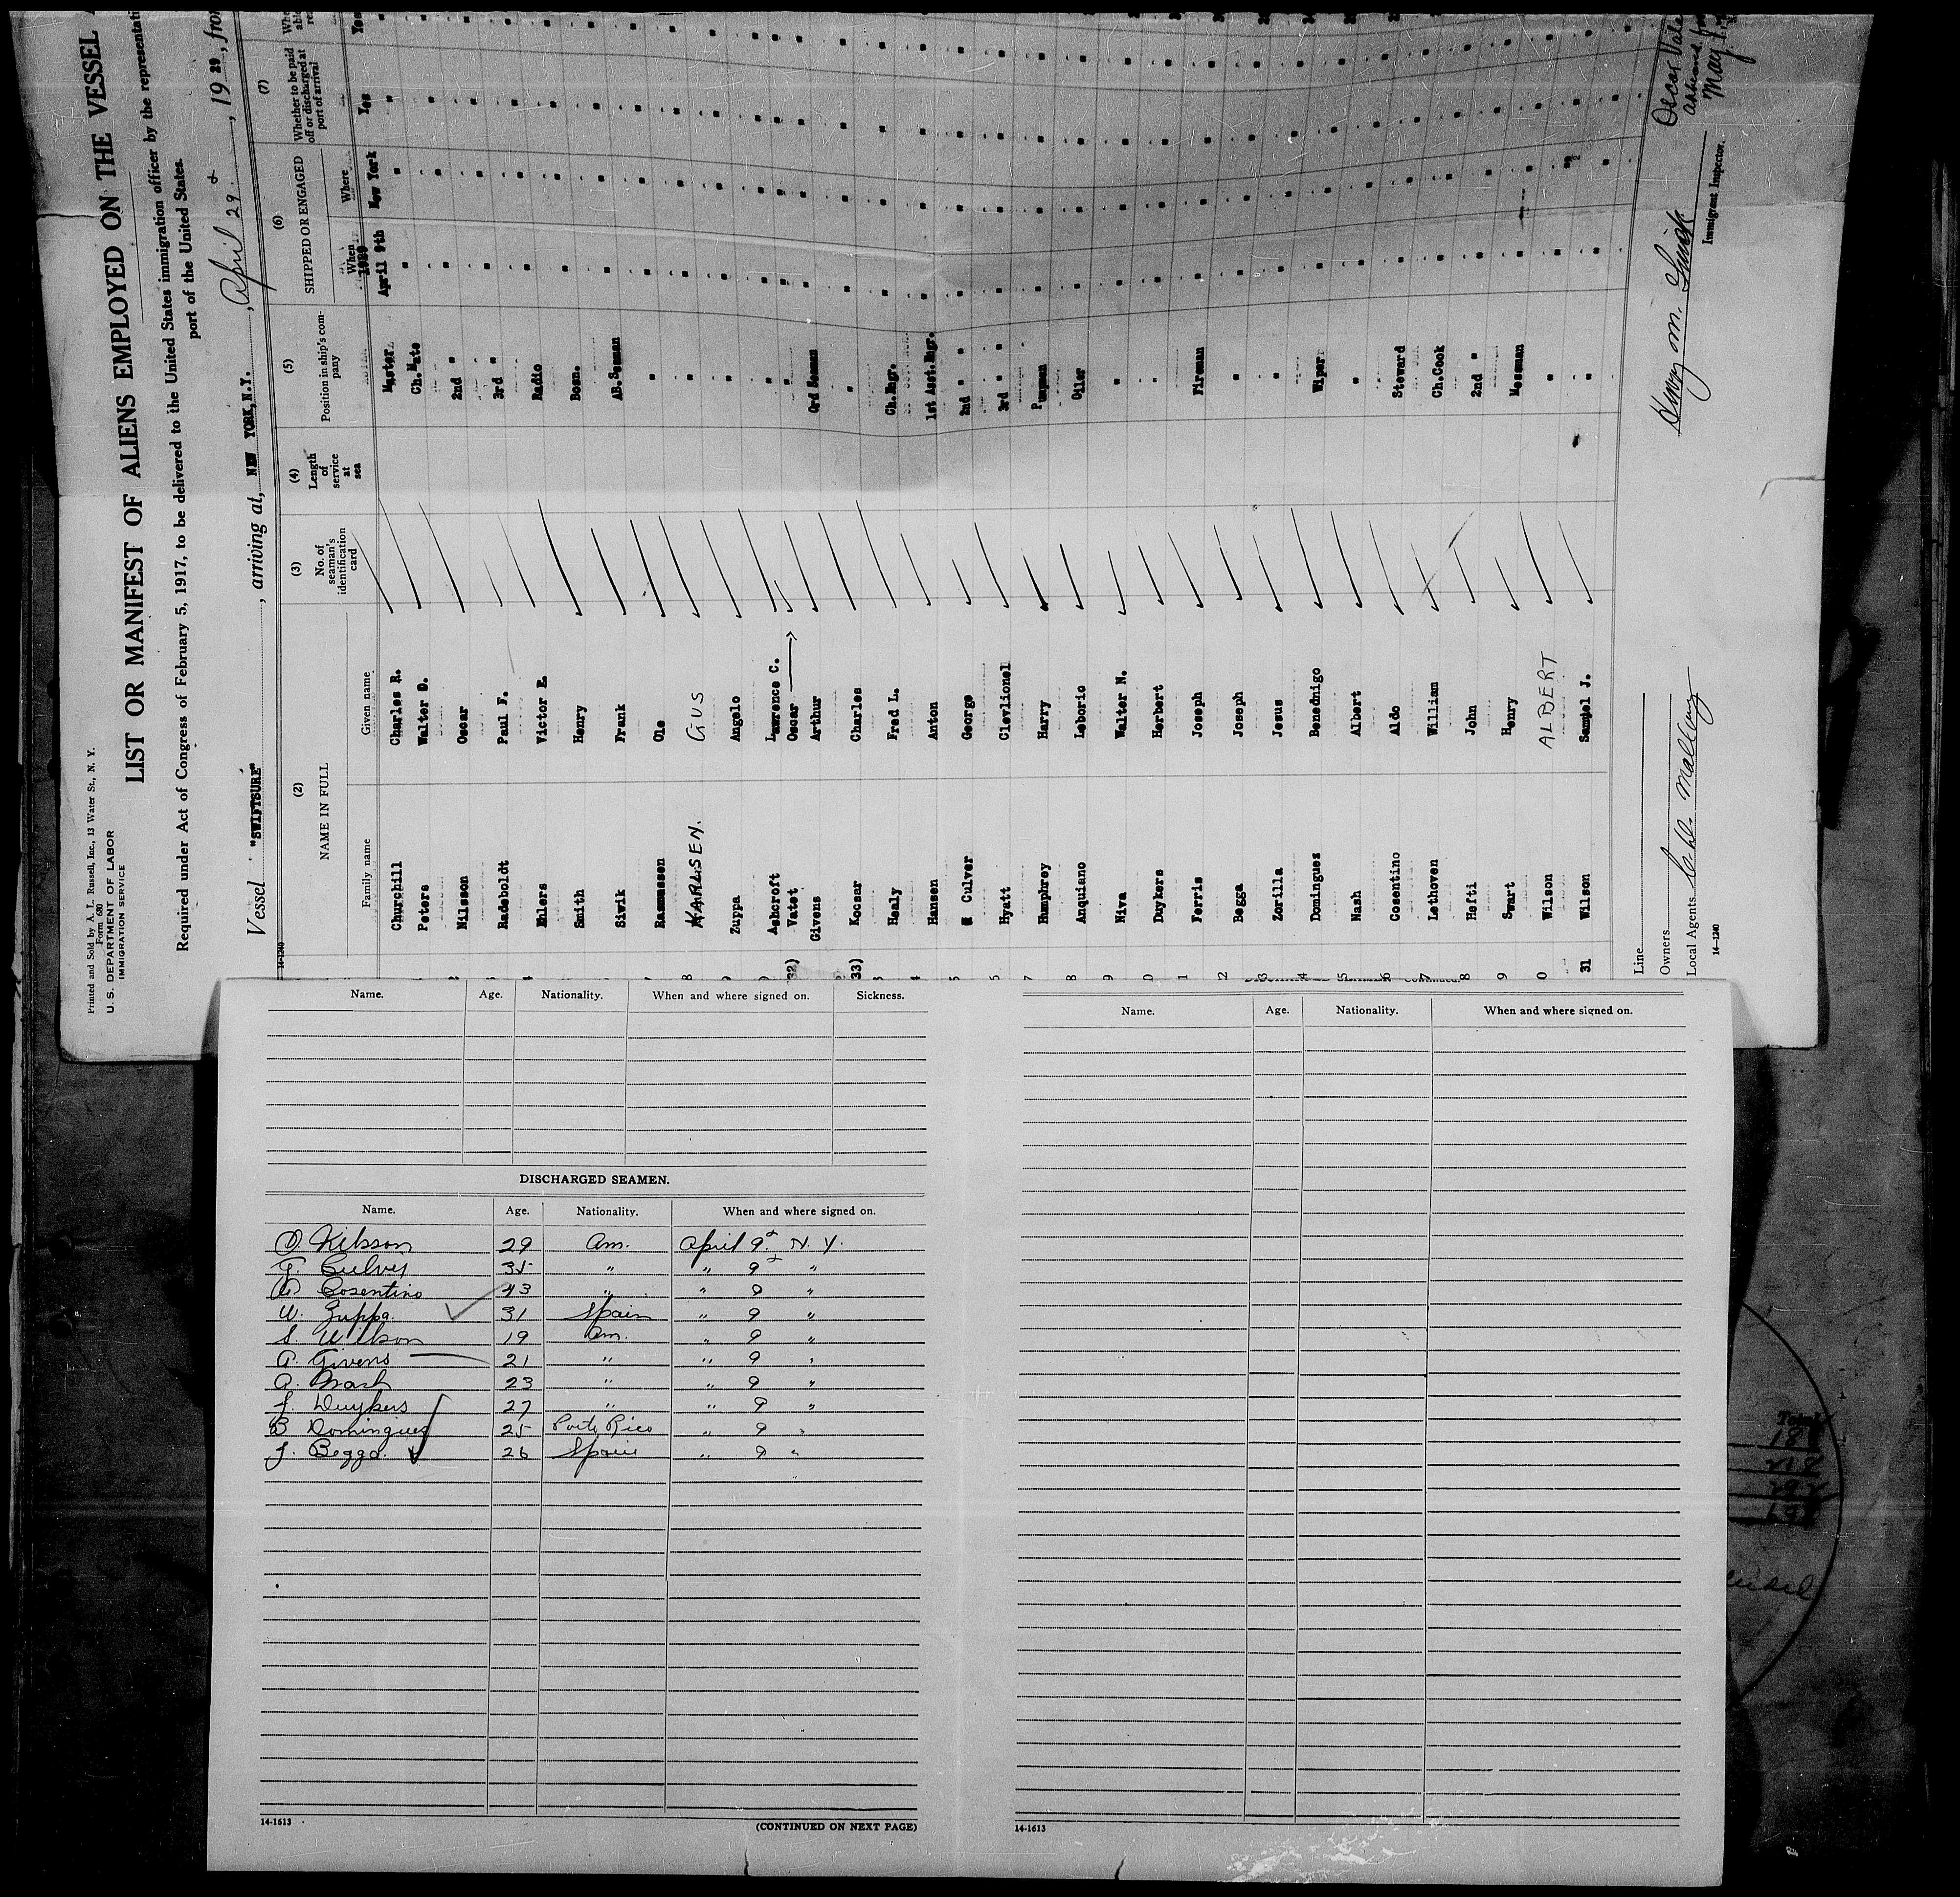 Printed and Sold by A. J. Russell, Inc., 13 Water St., N. Y.
Form 680
U. S. DEPARTMENT OF LABOR
IMMIGRATION SERVICE
LIST OR MANIFEST OF ALIENS EMPLOYED ON THE VESSEL
Required under Act of Congress of February 5, 1917, to be delivered to the United States immigration officer by the representati
port of the United States.
Vessel "SWIFTSURE", arriving at, NEW YORK, N.Y., April 29, 1929, from
14-1240
(2) (3) (4) (5) (6) (7)
NAME IN FULL No. of seaman's identification card Length of service at sea Position in ship's company SHIPPED OR ENGAGED Whether to be paid off or discharged at port of arrival
Family name Given name When Where
1929
Churchill Charles R. Master April 9th New York Yes Yes
Peters Walter D. Ch. Mate " " "
2 Nilsson Oscar 2nd " " " "
3 Radeboldt Paul F. 3rd " " " "
4 Ehlers Victor E. Radio " " "
Smith Henry Bosn. " " "
Siwik Frank AB. Seaman " " "
7 Rasmussen Ole " " " "
8 KARLSEN. GUS " " " "
9 Zuppa Angelo " " " "
9 Ashcroft Lawrence C. " " " "
32) Vatet Oscar " " " "
Givens Arthur Ord Seaman " " "
33) Kocsar Charles " " " "
3 Healy Fred L. Ch. Engr. " " "
4 Hansen Anton 1st Asst. Engr. " " "
5 Culver George 2nd " " " " "
6 Hyatt Clevlionel 3rd " " " " "
7 Humphrey Harry Pumpman " " "
8 Anquiano Leborio Oiler " " "
9 Niva Walter N. " " " "
0 Duykers Herbert " " " "
1 Ferris Joseph Fireman " " "
2 Begga Joseph " " " "
3 Zorilla Jesus " " " "
4 Domingues Benednigo Wiper " " "
5 Nash Albert " " " "
6 Cosentino Aldo Steward " " "
7 Lethoven William Ch. Cook " " "
8 Hefti John 2nd " " " "
9 Swart Henry Mesman " " "
0 Wilson ALBERT " " " "
31 Wilson Samuel J. " " " "
Line
Owners
Local Agents
14-1240
Immigrant Inspector.
Oscar
May
Name. Age. Nationality. When and where signed on. Sickness.
DISCHARGED SEAMEN.
Name. Age. Nationality. When and where signed on.
O. Nilsson 29 Am. April 9th N. Y.
G. Culver 35 " " 9th "
A. Cosentino 43 " " 9 "
W. Zuppa. 31 Spain " 9 "
S. Wilson 19 Am. " 9 "
A. Givens 21 " " 9 "
A. Nash 23 " " 9 "
J. Duykers 27 " " 9 "
B Domingues 25 Porto Rico " 9 "
J. Begga. 26 Spain " 9 "
14-1613
(CONTINUED ON NEXT PAGE)
Name. Age. Nationality. When and where signed on.
14-1613
Total